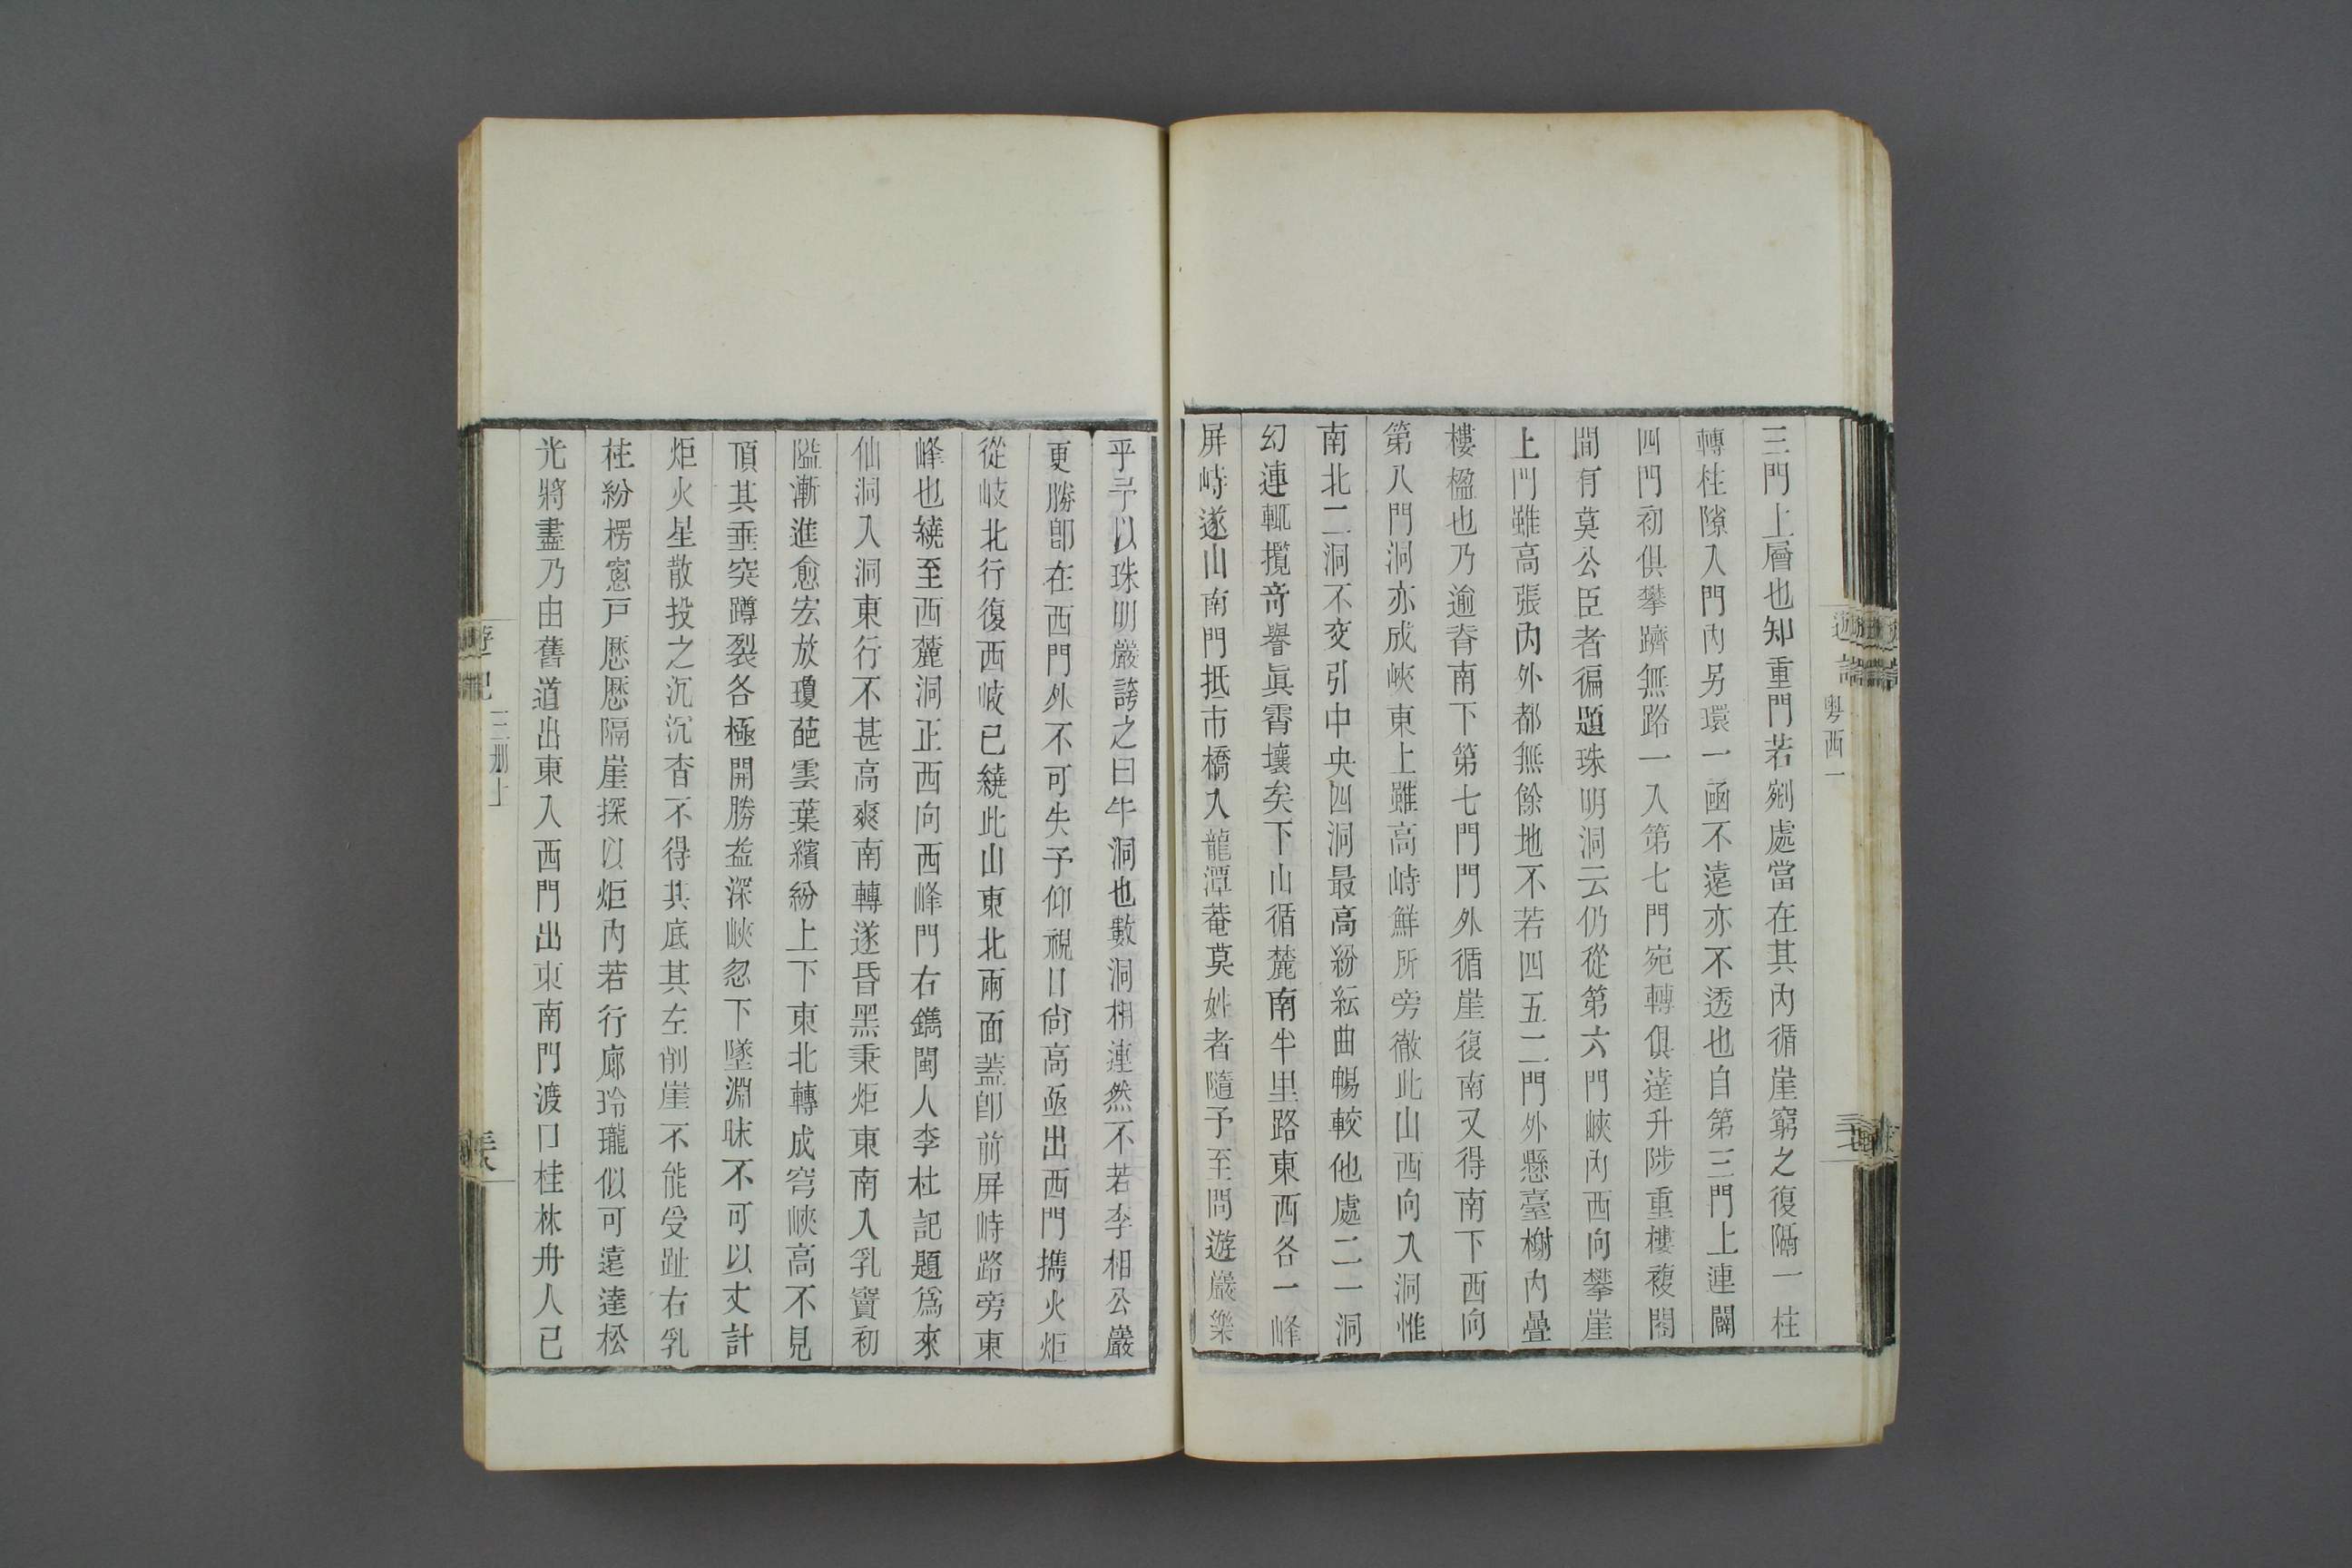 粤西一
三門上層也知重門若剜處當在其內循崖窮之復隔一柱
轉柱隙入門內另環一函不遠亦不透也自第三門上連闢
四門初俱攀躋無路一入第七門宛轉俱達升陟重樓複閣
間有莫公臣者徧題珠明洞云仍從第六門峽內西向攀崖
上門雖高張內外都無餘地不若四五二門外懸臺榭內疊
樓楹也乃逾脊南下第七門門外循崖復南又得南下西向
第八門洞亦成峽東上雖高峙鮮所旁徹此山西向入洞惟
南北二洞不交引中央四洞最高紛紜曲暢較他處二一洞
幻連輒攬奇譽眞霄壤矣下山循麓南半里路東西各一峰
屏峙遂山南門抵市橋入龍潭菴莫姓者隨予至問遊巖樂
乎予以珠明巖誇之曰牛洞也數洞相連然不若李相公巖
更勝卽在西門外不可失予仰視日尙高亟出西門擕火炬
從岐北行復西岐已繞此山東北兩面蓋卽前屏峙路旁東
峰也繞至西麓洞正西向西峰門右鐫閩人李杜記題爲來
仙洞入洞東行不甚高爽南轉遂昏黑秉炬東南入乳竇初
隘漸進愈宏放瓊葩雲葉繽紛上下東北轉成穹峽高不見
頂其垂突蹲裂各極開勝益深峽忽下墜淵昧不可以丈計
炬火星散投之沉沉杳不得其底其左削崖不能受趾右乳
柱紛楞窻戶歷歷隔崖探以炬內若行廊玲瓏似可遠達松
光將盡乃由舊道出東入西門出東南門渡口桂林舟人已
遊記
三册上